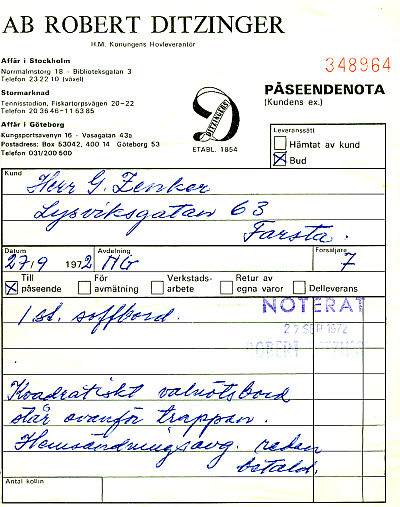 AB ROBERT DITZINGER
H.M. Konungens Hovleverantör
Affär i Stockholm
Norrmalmstorg 18 - Biblioteksgatan 3
Telefon 23 22 10 (växel)
Stormarknad
Tennisstadion, Fiskartorpsvägen 20-22
Telefon 20 36 46 - 11 63 85
Affär i Göteborg
Kungsportsavenyn 16 - Vasagatan 43a
Postadress: Box 53042, 400 14 Göteborg 53
Telefon 031/200 500
DITZINGERS
ETABL. 1854
348964
PÅSEENDENOTA
(Kundens ex.)
Leveranssätt
Hämtat av kund
Bud
Kund
Herr G. Zenker
Lysviksgatan 63
Farsta.
Datum Avdelning Försäljare
27/9 1972 MG 7
Till påseende
För avmätning
Verkstads-arbete
Retur av egna varor
Delleverans
1 st. soffbord.
NOTERAT
27 SEP 1972
ROBERT
Kvadratiskt valnötsbord
står ovanför trappan.
Hemsändningsavg. redan
betald.
Antal kollin